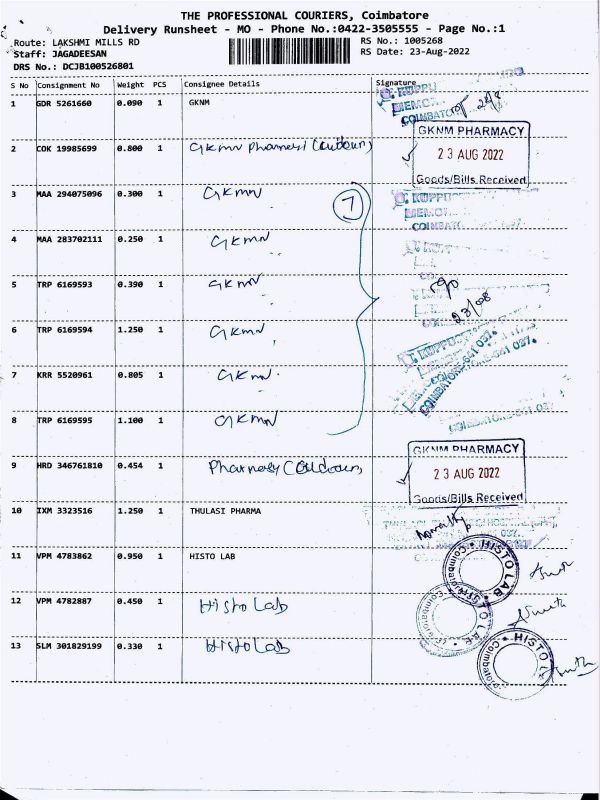 THE PROFESSIONAL COURIERS, Coimbatore
Delivery Runsheet - MO - Phone No.:0422-3505555 - Page No.:1
Route: LAKSHMI MILLS RD
Staff: JAGADEESAN
DRS No.: DCJB100526801
RS No.: 1005268
RS Date: 23-Aug-2022
S No Consignment No Weight PCS Consignee Details Signature
1 GDR 5261660 0.090 1 GKNM
GKNM PHARMACY
2 COK 19985699 0.800 1 GKMN Pharmacy
23 AUG 2022
Goods/Bills Received
3 MAA 294075096 0.300 1 GKMN 7
4 MAA 283702111 0.250 1 GKMN
5 TRP 6169593 0.390 1 GKMN
23/08
6 TRP 6169594 1.250 1 GKMN
7 KRR 5520961 0.805 1 GKMN
8 TRP 6169595 1.100 1 GKMN
GKNM PHARMACY
9 HRD 346761810 0.454 1 Pharmacy
23 AUG 2022
Goods/Bills Received
10 IXM 3323516 1.250 1 THULASI PHARMA
11 VPM 4783862 0.950 1 HISTO LAB
HISTO LAB
Coimbatore
12 VPM 4782887 0.450 1 Histo Lab
13 SLM 301829199 0.330 1 Histo Lab
HISTO LAB
Coimbatore